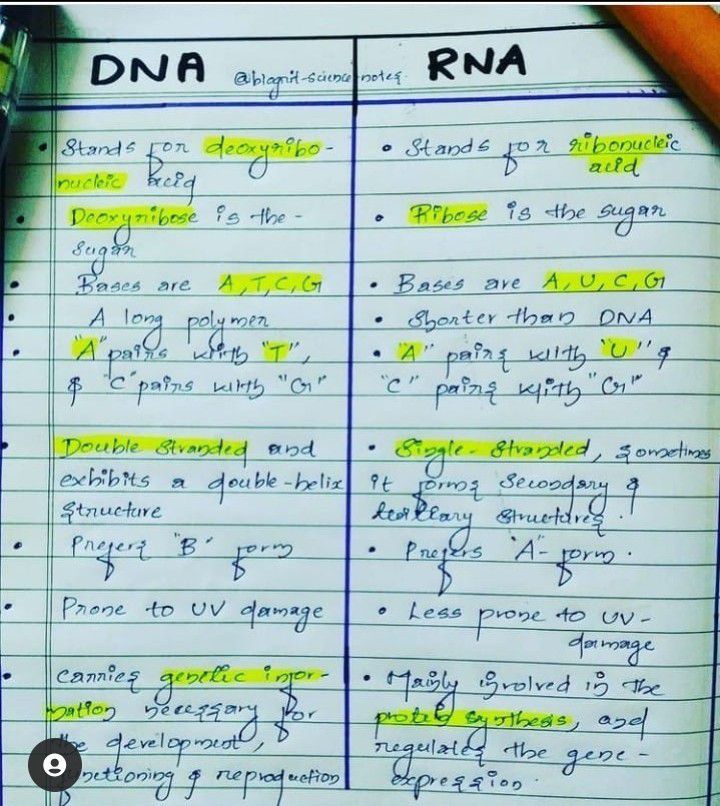 DNA
@biognit-science-notes
RNA
• Stands for deoxyribo-
nucleic acid
• Deoxyribose is the -
sugar
• Bases are A,T,C,G
• A long polymer
• "A" pairs with "T",
& "C" pairs with "G"
• Double Stranded and
exhibits a double-helix
structure
• Prefers "B" form
• Prone to UV damage
• Carries genetic infor-
mation necessary for
the development,
functioning & reproduction
• Stands for ribonucleic
acid
• Ribose is the sugar
• Bases are A, U, C, G
• Shorter than DNA
• "A" pairs with "U" &
"C" pairs with "G"
• Single-Stranded, sometimes
it forms Secondary &
tertiary structures.
• Prefers "A"- form.
• Less prone to UV-
damage
• Mainly involved in the
protein synthesis, and
regulates the gene-
expression.